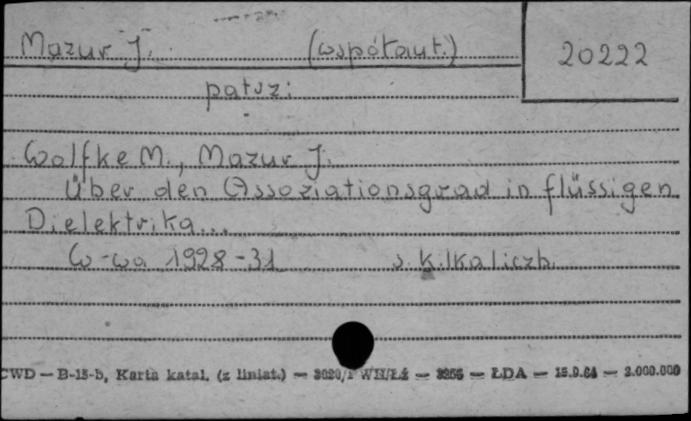 Mazur J. (współaut.) 20222
patrz:
Wolfke M., Mazur J.
Über den Assoziationsgrad in flüssigen
Dielektrika...
W-wa 1928-31 s. kilkaliczb.
CWD — B-15-b, Karta katal. (z liniat.) — WH/Łź — — ŁDA — 15.9.64 — 2.000.000